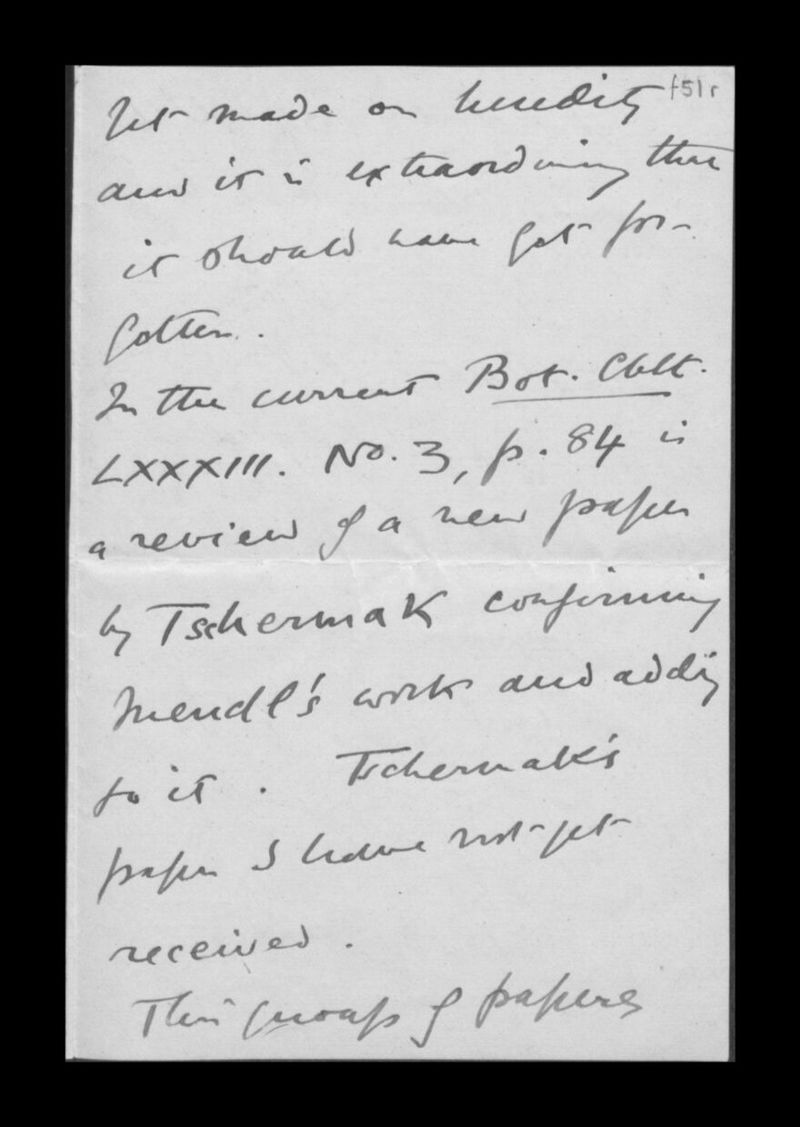 f51r
yet made on heredity
and it is extraordinary that
it should have got for-
gotten.
In the current Bot. Cblt.
LXXXIII. No. 3, p. 84 is
a review of a new paper
by Tschermak confirming
Mendl's work and adding
to it. Tschermak's
paper I have not yet
received.
This group of papers